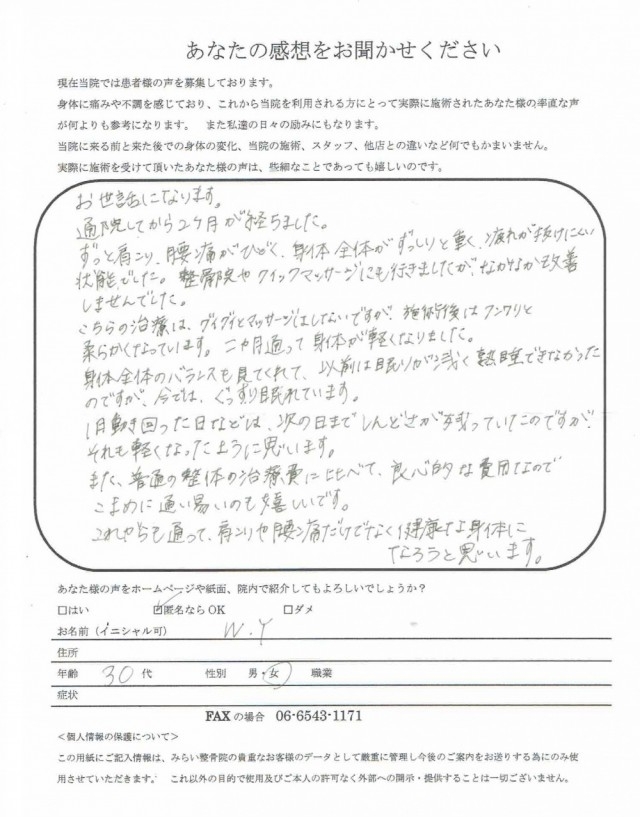 あなたの感想をお聞かせください
現在当院では患者様の声を募集しております。
身体に痛みや不調を感じており、これから当院を利用される方にとって実際に施術されたあなた様の率直な声
が何よりも参考になります。 また私達の日々の励みにもなります。
当院に来る前と来た後での身体の変化、当院の施術、スタッフ、他店との違いなど何でもかまいません。
実際に施術を受けて頂いたあなた様の声は、些細なことであっても嬉しいのです。
お世話になります。
通院してから2ヶ月が経ちました。
ずっと肩こり、腰痛がひどく、身体全体がずっしりと重く、疲れが抜けにくい
状態でした。整骨院やクイックマッサージにも行きましたが、なかなか改善
しませんでした。
こちらの治療は、グイグイとマッサージはしないですが、施術後はフンワリと
柔らかくなっています。二ヶ月通って身体が軽くなりました。
身体全体のバランスも見てくれて、以前は眠りが浅く熟睡できなかった
のですが、今では、ぐっすり眠れています。
1日動き回った日などは、次の日までしんどさが残っていたのですが、
それも軽くなったように思います。
また、普通の整体の治療費に比べて、良心的な費用なので
こまめに通い易いのも嬉しいです。
これからも通って、肩こりや腰痛だけでなく健康な身体に
なろうと思います。
あなた様の声をホームページや紙面、院内で紹介してもよろしいでしょうか？
□はい ☑匿名ならOK □ダメ
お名前（イニシャル可） W.Y
住所
年齢 30 代 性別 男・女 職業
症状
FAXの場合 06-6543-1171
＜個人情報の保護について＞
この用紙にご記入情報は、みらい整骨院の貴重なお客様のデータとして厳重に管理し今後のご案内をお送りする為にのみ使
用させていただきます。 これ以外の目的で使用及びご本人の許可なく外部への開示・提供することは一切ございません。